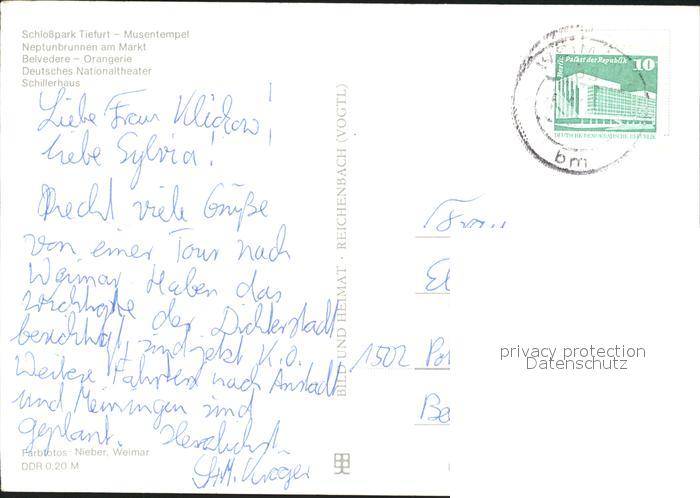 Schloßpark Tiefurt – Musentempel
Neptunbrunnen am Markt
Belvedere – Orangerie
Deutsches Nationaltheater
Schillerhaus
Liebe Frau Klickow!
liebe Sylvia!
Recht viele Grüße
von einer Tour nach
Weimar. Haben das
wichtigste der Dichterstadt
besichtigt, sind jetzt K.O.
Weitere Fahrten nach Arnstadt
und Meiningen sind
geplant. Herzlichst
Krüger
Farbfotos: Nieber, Weimar
DDR 0,20 M
BILD UND HEIMAT · REICHENBACH (VOGTL)
WEIMAR
bm
Palast der Republik 10
Berlin
DEUTSCHE DEMOKRATISCHE REPUBLIK
Frau
1502
privacy protection
Datenschutz